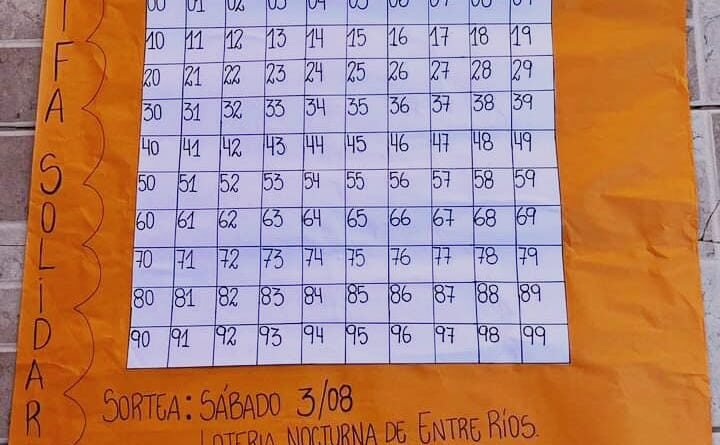 IFA SOLIDAR
00 01 02 03 04 05 06 07 08 09
10 11 12 13 14 15 16 17 18 19
20 21 22 23 24 25 26 27 28 29
30 31 32 33 34 35 36 37 38 39
40 41 42 43 44 45 46 47 48 49
50 51 52 53 54 55 56 57 58 59
60 61 62 63 64 65 66 67 68 69
70 71 72 73 74 75 76 77 78 79
80 81 82 83 84 85 86 87 88 89
90 91 92 93 94 95 96 97 98 99
SORTEA: SÁBADO 3/08
LOTERIA NOCTURNA DE ENTRE RÍOS.